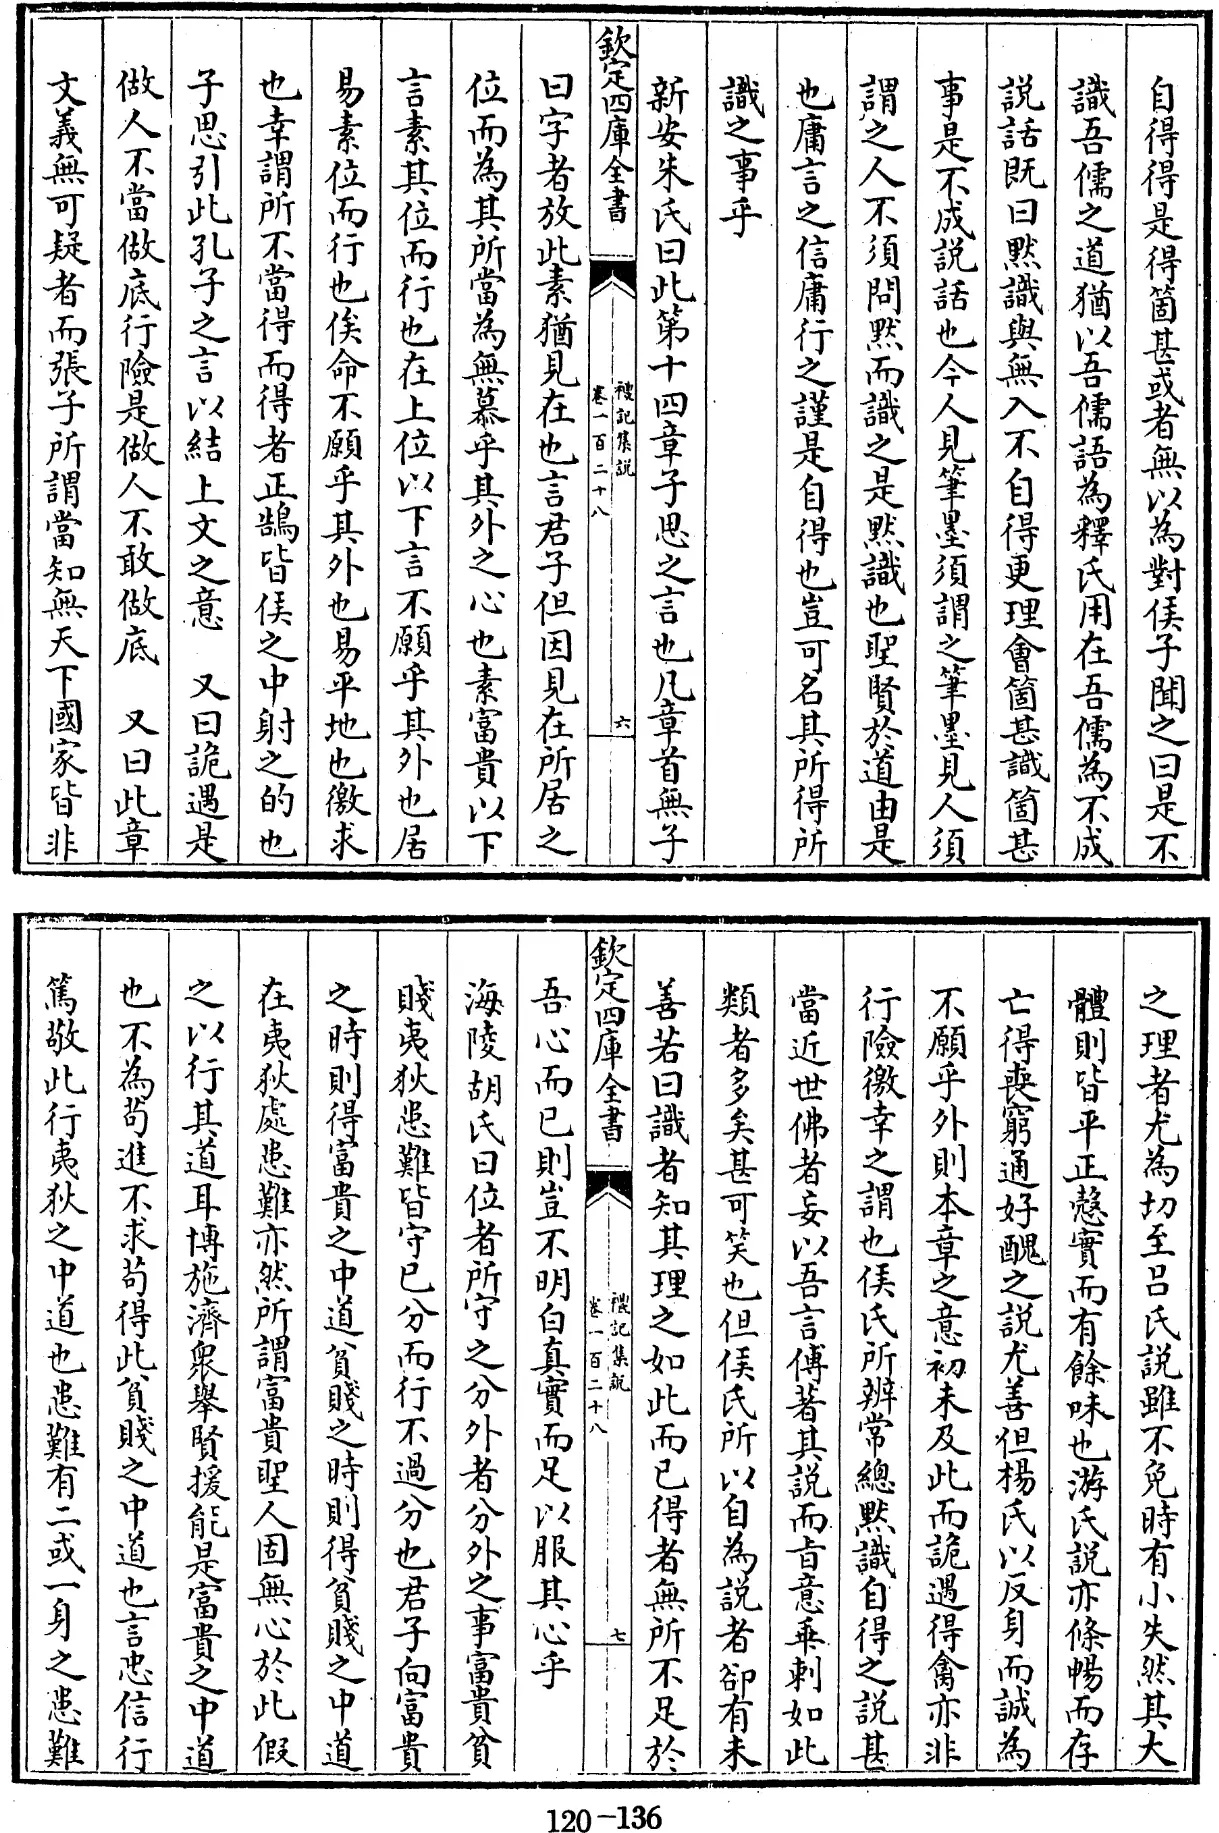 自得得是得箇甚或者無以為對侯子聞之曰是不
識吾儒之道猶以吾儒語為釋氏用在吾儒為不成
説話既曰黙識與無入不自得更理會箇甚識箇甚
事是不成説話也今人見筆墨須謂之筆墨見人須
謂之人不須問黙而識之是黙識也聖賢於道由是
也庸言之信庸行之謹是自得也豈可名其所得所
識之事乎
新安朱氏曰此第十四章子思之言也凡章首無子
欽定四庫全書
禮記集説
卷一百二十八
六
曰字者放此素猶見在也言君子但因見在所居之
位而為其所當為無慕乎其外之心也素富貴以下
言素其位而行也在上位以下言不願乎其外也居
易素位而行也俟命不願乎其外也易平地也徼求
也幸謂所不當得而得者正鵠皆侯之中射之的也
子思引此孔子之言以結上文之意 又曰詭遇是
做人不當做底行險是做人不敢做底 又曰此章
文義無可疑者而張子所謂當知無天下國家皆非
之理者尤為切至吕氏説雖不免時有小失然其大
體則皆平正慤實而有餘味也游氏説亦條暢而存
亡得喪窮通好醜之説尤善但楊氏以反身而誠為
不願乎外則本章之意初未及此而詭遇得禽亦非
行險徼幸之謂也侯氏所辨常總黙識自得之説甚
當近世佛者妄以吾言傅著其説而㫖意乖剌如此
類者多矣甚可笑也但侯氏所以自為説者卻有未
善若曰識者知其理之如此而已得者無所不足於
欽定四庫全書
禮記集説
卷一百二十八
七
吾心而已則豈不明白真實而足以服其心乎
海陵胡氏曰位者所守之分外者分外之事富貴貧
賤夷狄患難皆守己分而行不過分也君子向富貴
之時則得富貴之中道貧賤之時則得貧賤之中道
在夷狄處患難亦然所謂富貴聖人固無心於此假
之以行其道耳博施濟衆舉賢援能是富貴之中道
也不為茍進不求茍得此貧賤之中道也言忠信行
篤敬此行夷狄之中道也患難有二或一身之患難
120-136